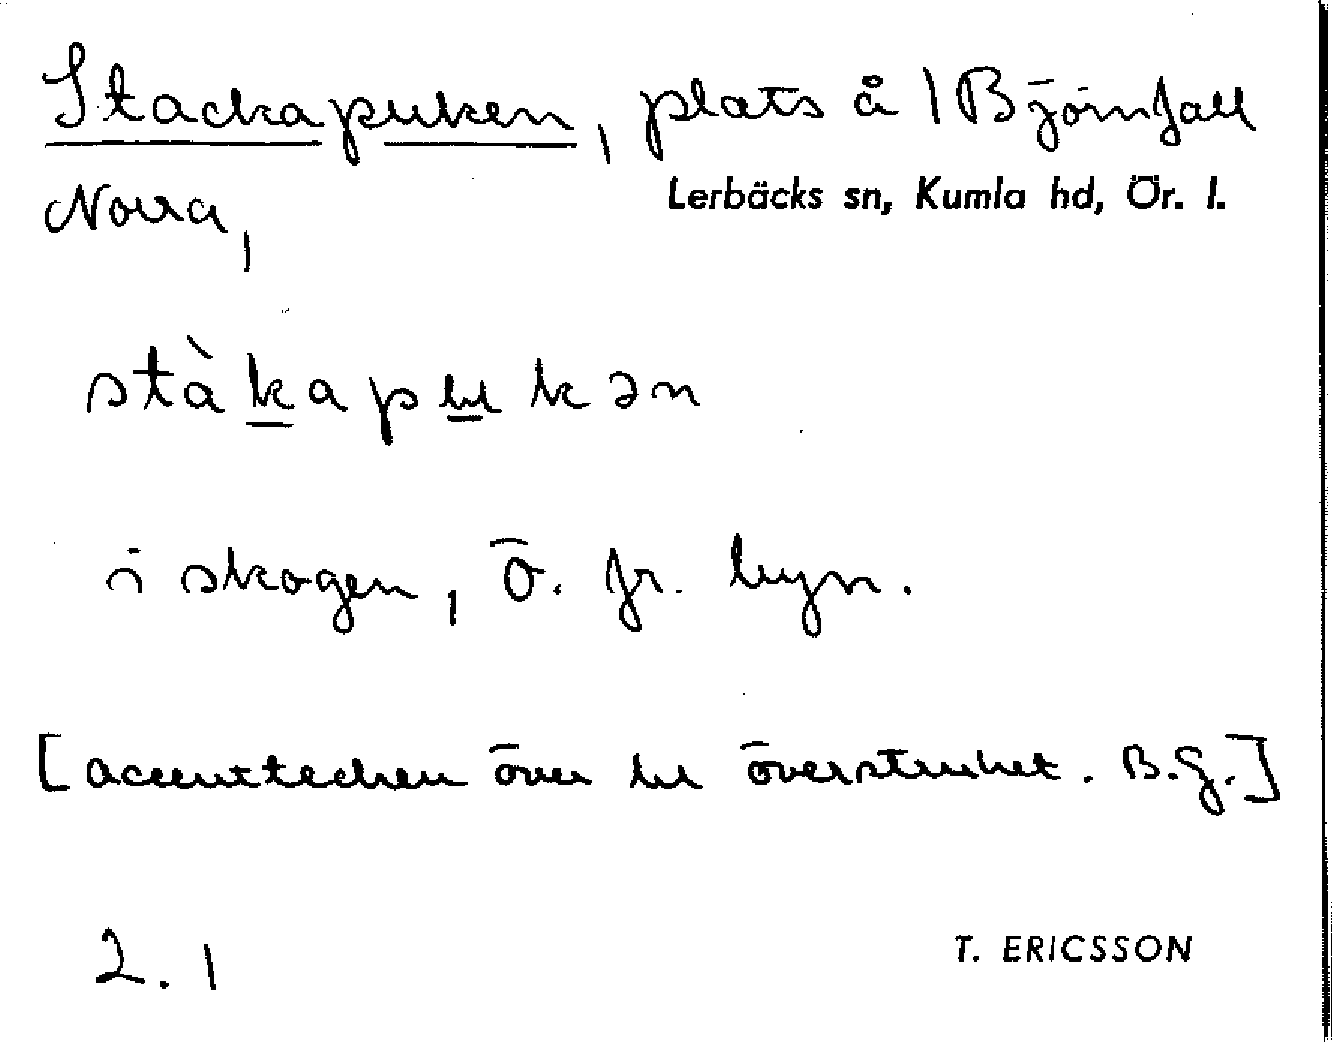 Stackapuken, plats å 1 Björnfall
Lerbäcks sn, Kumla hd, Ör. l.
Norra,
stàkapukən
i skogen, ö. fr. byn.
[accenttecken över u överstruket. B.G.]
2. 1
T. ERICSSON